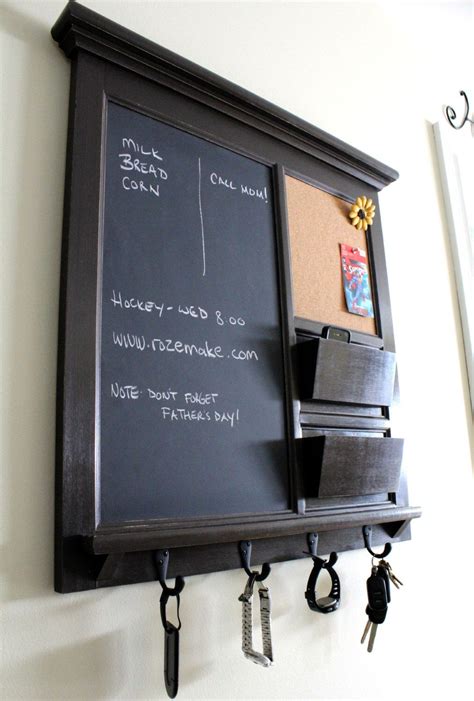 MILK
BREAD
CORN
CALL MOM!
HOCKEY - WED 8.00
WWW.ROZEMAKE.COM
NOTE: DON'T FORGET
FATHER'S DAY!